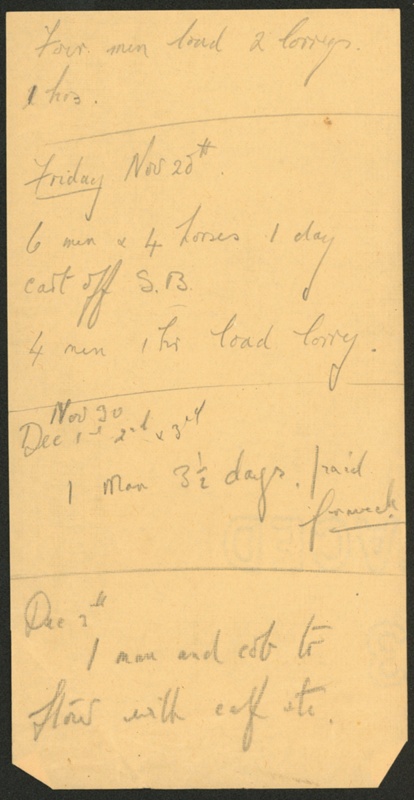 Four men load 2 lorrys.
1 hrs.
Friday Nov 20th.
6 men & 4 horses 1 day
cart off S.B.
4 men 1 hr load lorry.
Nov 30
Dec 1st 2nd & 3rd
1 man 3½ days. paid
Dec 3rd
1 man and cob to
Stow with calf etc.